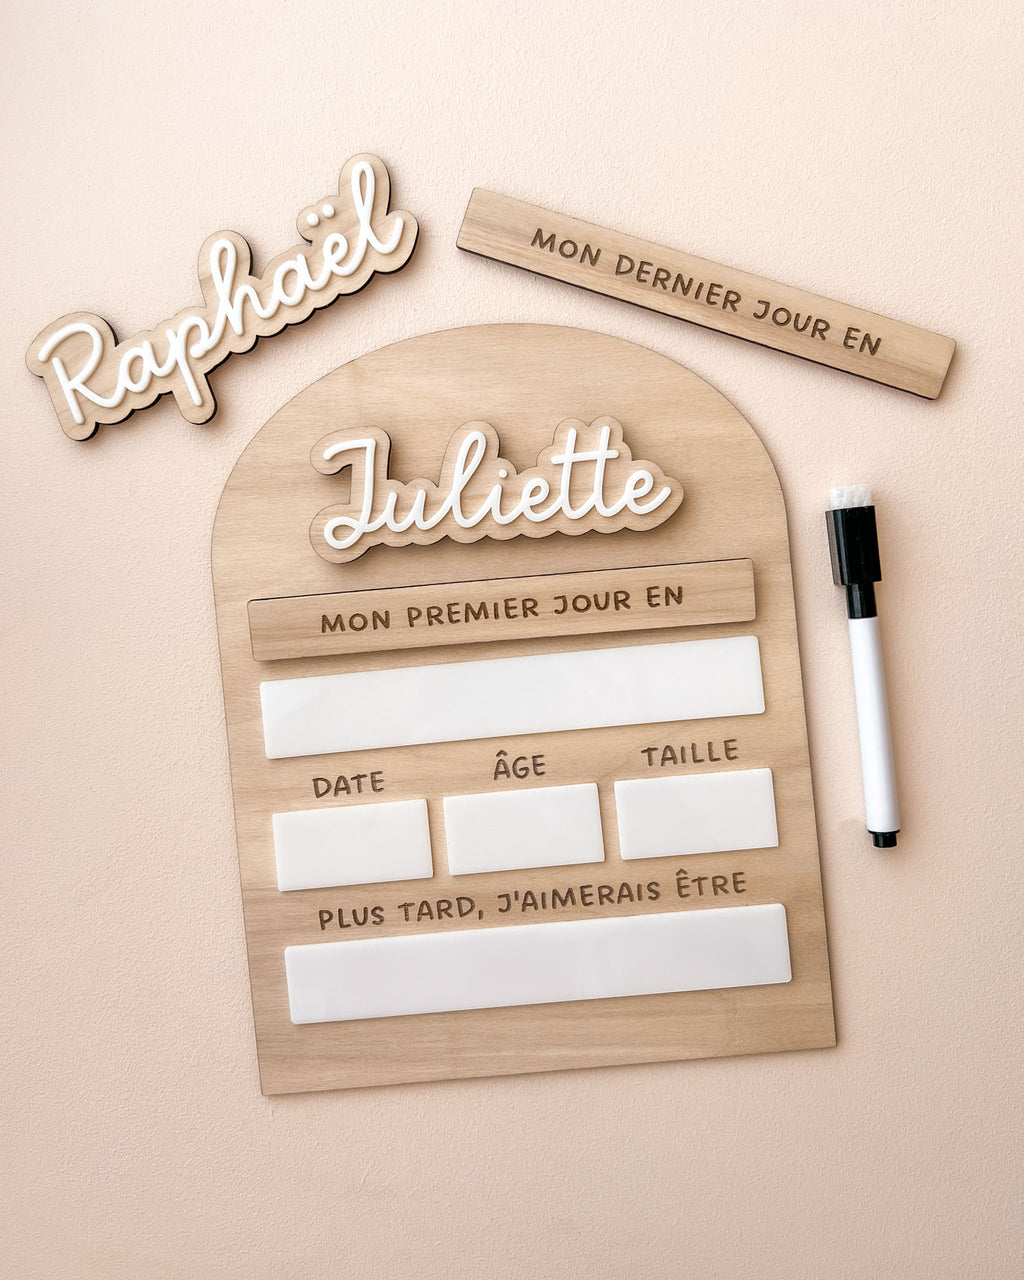 Raphaël
MON DERNIER JOUR EN
Juliette
MON PREMIER JOUR EN
DATE
ÂGE
TAILLE
PLUS TARD, J'AIMERAIS ÊTRE